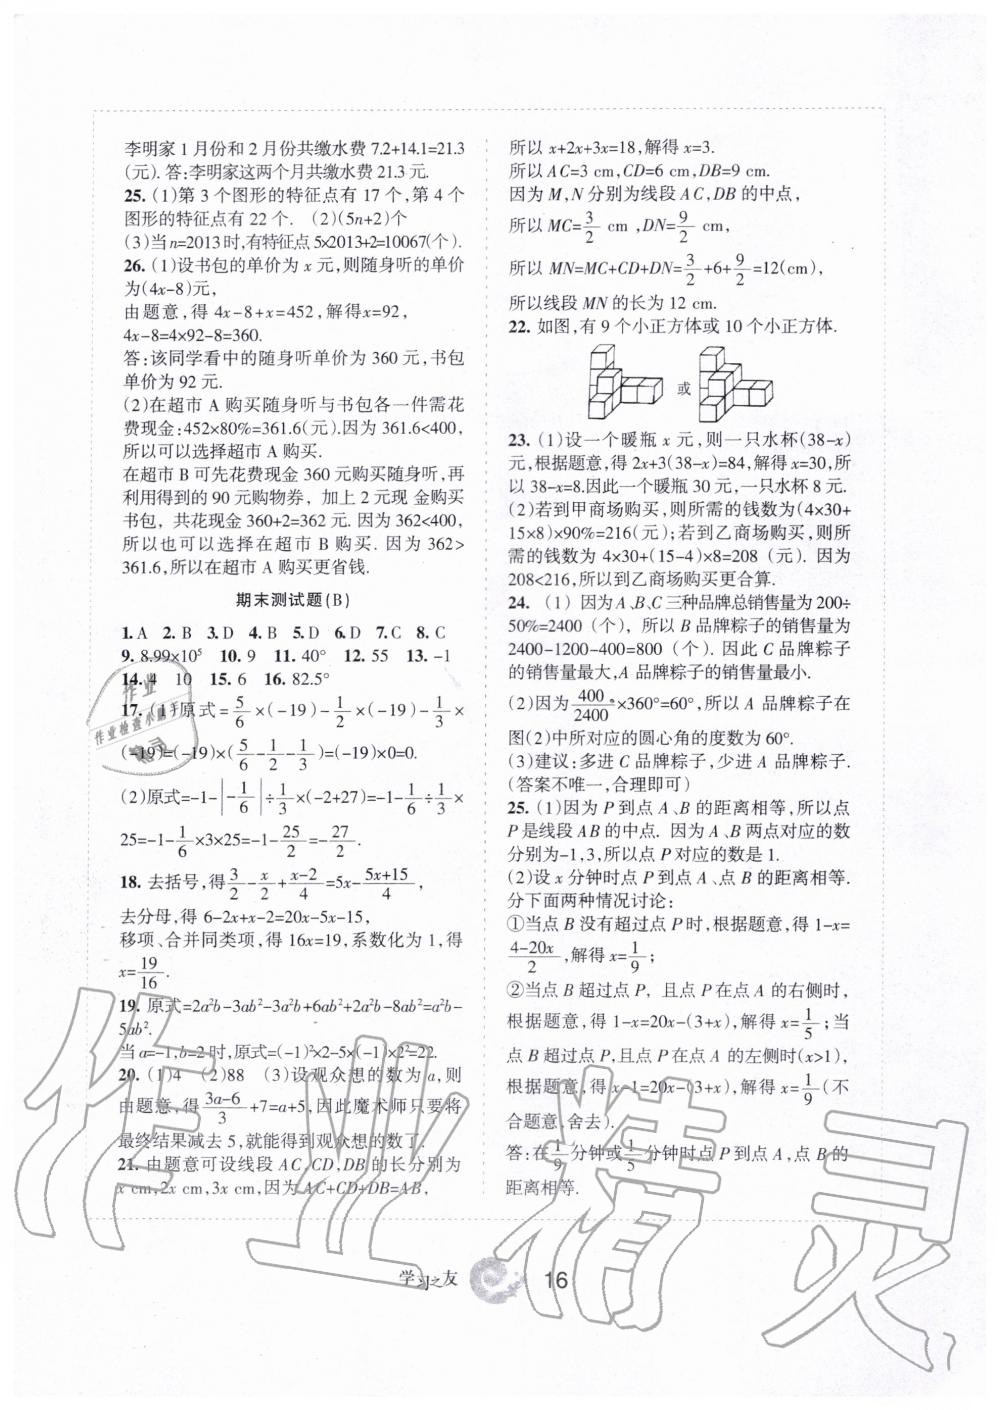 李明家 1 月份和 2 月份共缴水费 7.2+14.1=21.3
(元). 答:李明家这两个月共缴水费 21.3 元.
25. (1)第 3 个图形的特征点有 17 个,第 4 个
图形的特征点有 22 个. (2)(5n+2)个
(3)当 n=2013 时,有特征点 5×2013+2=10067(个).
26. (1)设书包的单价为 x 元,则随身听的单价
为(4x-8)元,
由题意,得 4x-8+x=452,解得x=92,
4x-8=4×92-8=360.
答:该同学看中的随身听单价为 360 元,书包
单价为 92 元.
(2)在超市 A 购买随身听与书包各一件需花
费现金:452×80%=361.6(元).因为 361.6<400,
所以可以选择超市 A 购买.
在超市 B 可先花费现金 360 元购买随身听,再
利用得到的 90 元购物券, 加上 2 元现 金购买
书包, 共花现金 360+2=362 元. 因为 362<400,
所以也可以选择在超市 B 购买. 因为 362>
361.6,所以在超市 A 购买更省钱.
期末测试题(B)
1. A 2. B 3. D 4. B 5. D 6. D 7. C 8. C
9. 8.99×10⁵ 10. 9 11. 40° 12. 55 13. -1
14. 4 10 15. 6 16. 82.5°
17. (1)原式=5/6×(-19)-1/2×(-19)-1/3×
(-19)=(-19)×(5/6-1/2-1/3)=(-19)×0=0.
(2)原式=-1-|-1/6|÷1/3×(-2+27)=-1-1/6÷1/3×
25=-1-1/6×3×25=-1-25/2=-27/2.
18. 去括号,得3/2-x/2+x-2/4=5x-5x+15/4,
去分母,得 6-2x+x-2=20x-5x-15,
移项、合并同类项,得 16x=19,系数化为 1,得
x=19/16.
19. 原式=2a²b-3ab²-3a²b+6ab²+2a²b-8ab²=a²b-
5ab².
当 a=-1,b=2 时,原式=(-1)²×2-5×(-1)×2²=22.
20. (1)4 (2)88 (3)设观众想的数为 a,则
由题意,得3a-6/3+7=a+5,因此魔术师只要将
最终结果减去 5,就能得到观众想的数了.
21. 由题意可设线段 AC,CD,DB 的长分别为
x cm,2x cm,3x cm,因为 AC+CD+DB=AB,
所以 x+2x+3x=18,解得 x=3.
所以 AC=3 cm,CD=6 cm,DB=9 cm.
因为 M,N 分别为线段 AC,DB 的中点,
所以 MC=3/2 cm ,DN=9/2 cm,
所以 MN=MC+CD+DN=3/2+6+9/2=12(cm),
所以线段 MN 的长为 12 cm.
22. 如图,有 9 个小正方体或 10 个小正方体.
或
23. (1)设一个暖瓶 x 元,则一只水杯(38-x)
元,根据题意,得 2x+3(38-x)=84,解得 x=30,所
以 38-x=8.因此一个暖瓶 30 元,一只水杯 8 元.
(2)若到甲商场购买,则所需的钱数为(4×30+
15×8)×90%=216(元);若到乙商场购买,则所
需的钱数为 4×30+(15-4)×8=208 (元). 因为
208<216,所以到乙商场购买更合算.
24. (1) 因为A、B、C三种品牌总销售量为1200÷
50%=2400 (个), 所以 B 品牌粽子的销售量为
2400-1200-400=800 (个). 因此 C 品牌粽子
的销售量最大,A 品牌粽子的销售量最小.
(2)因为400/2400×360°=60°,所以 A 品牌粽子在
图(2)中所对应的圆心角的度数为 60°.
(3)建议:多进 C 品牌粽子,少进 A 品牌粽子.
(答案不唯一,合理即可)
25. (1)因为 P 到点 A、B 的距离相等,所以点
P 是线段 AB 的中点. 因为 A、B 两点对应的数
分别为-1,3,所以点 P 对应的数是 1.
(2)设 x 分钟时点 P 到点 A、点 B 的距离相等.
分下面两种情况讨论:
①当点 B 没有超过点 P 时,根据题意,得 1-x=
4-20x/2,解得 x=1/9;
②当点 B 超过点 P, 且点 P 在点 A 的右侧时,
根据题意,得 1-x=20x-(3+x),解得 x=1/5;当
点 B 超过点 P,且点 P 在点 A 的左侧时(x>1),
根据题意,得 x-1=20x-(3+x),解得 x=1/9(不
合题意,舍去).
答:在1/9分钟或1/5分钟时点 P 到点 A,点 B 的
距离相等.
学习之友 16
作业
作业检查小助手
精灵
作业精灵